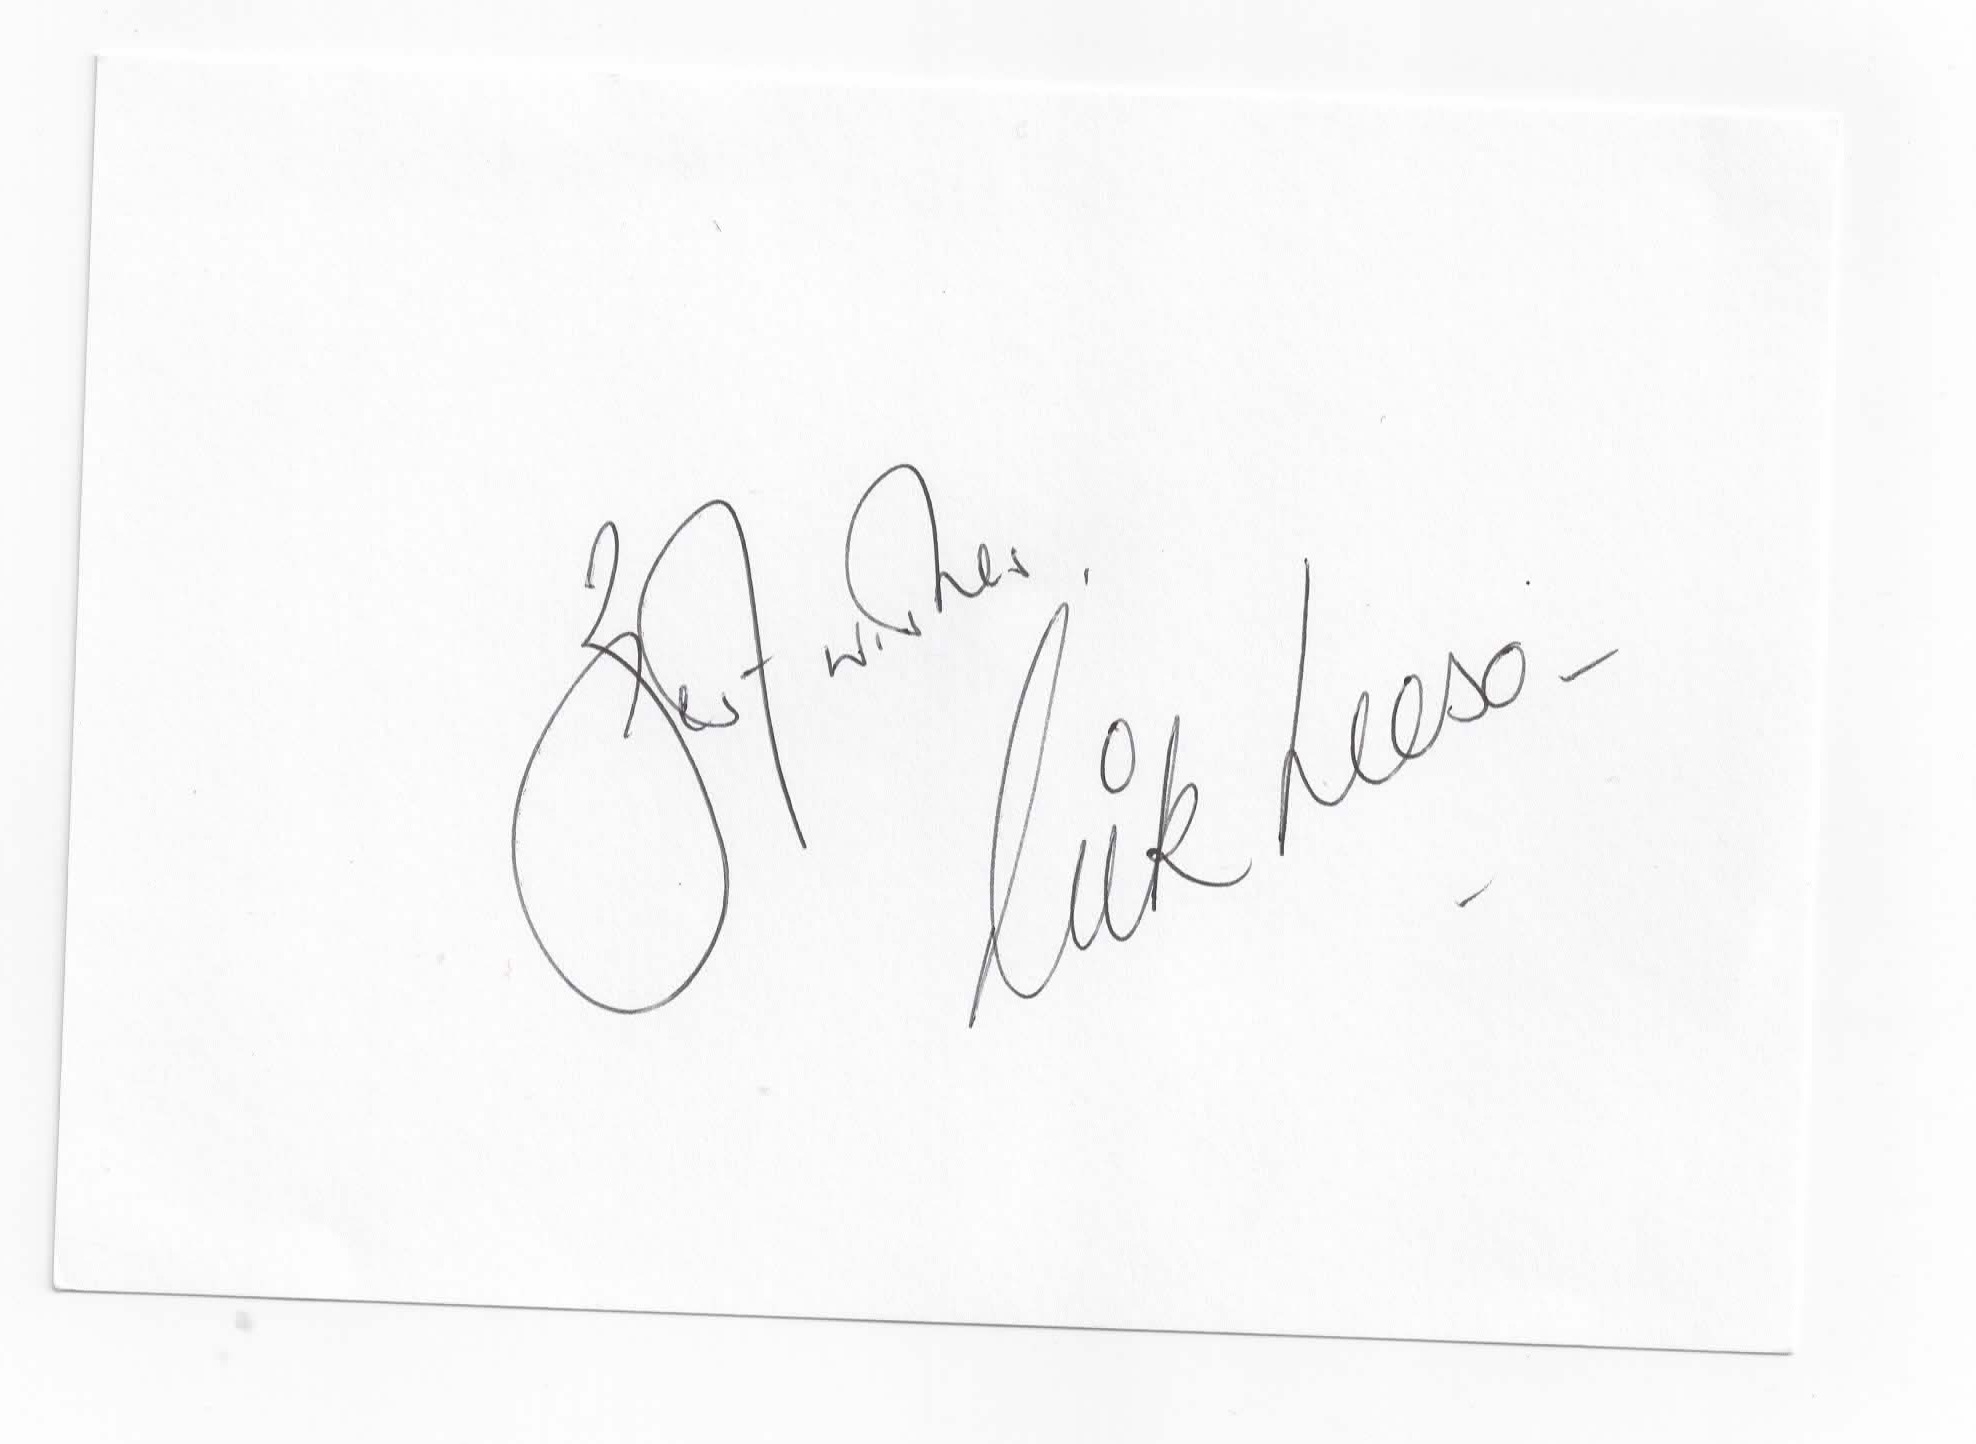 Best wishes.
Nick Leeson